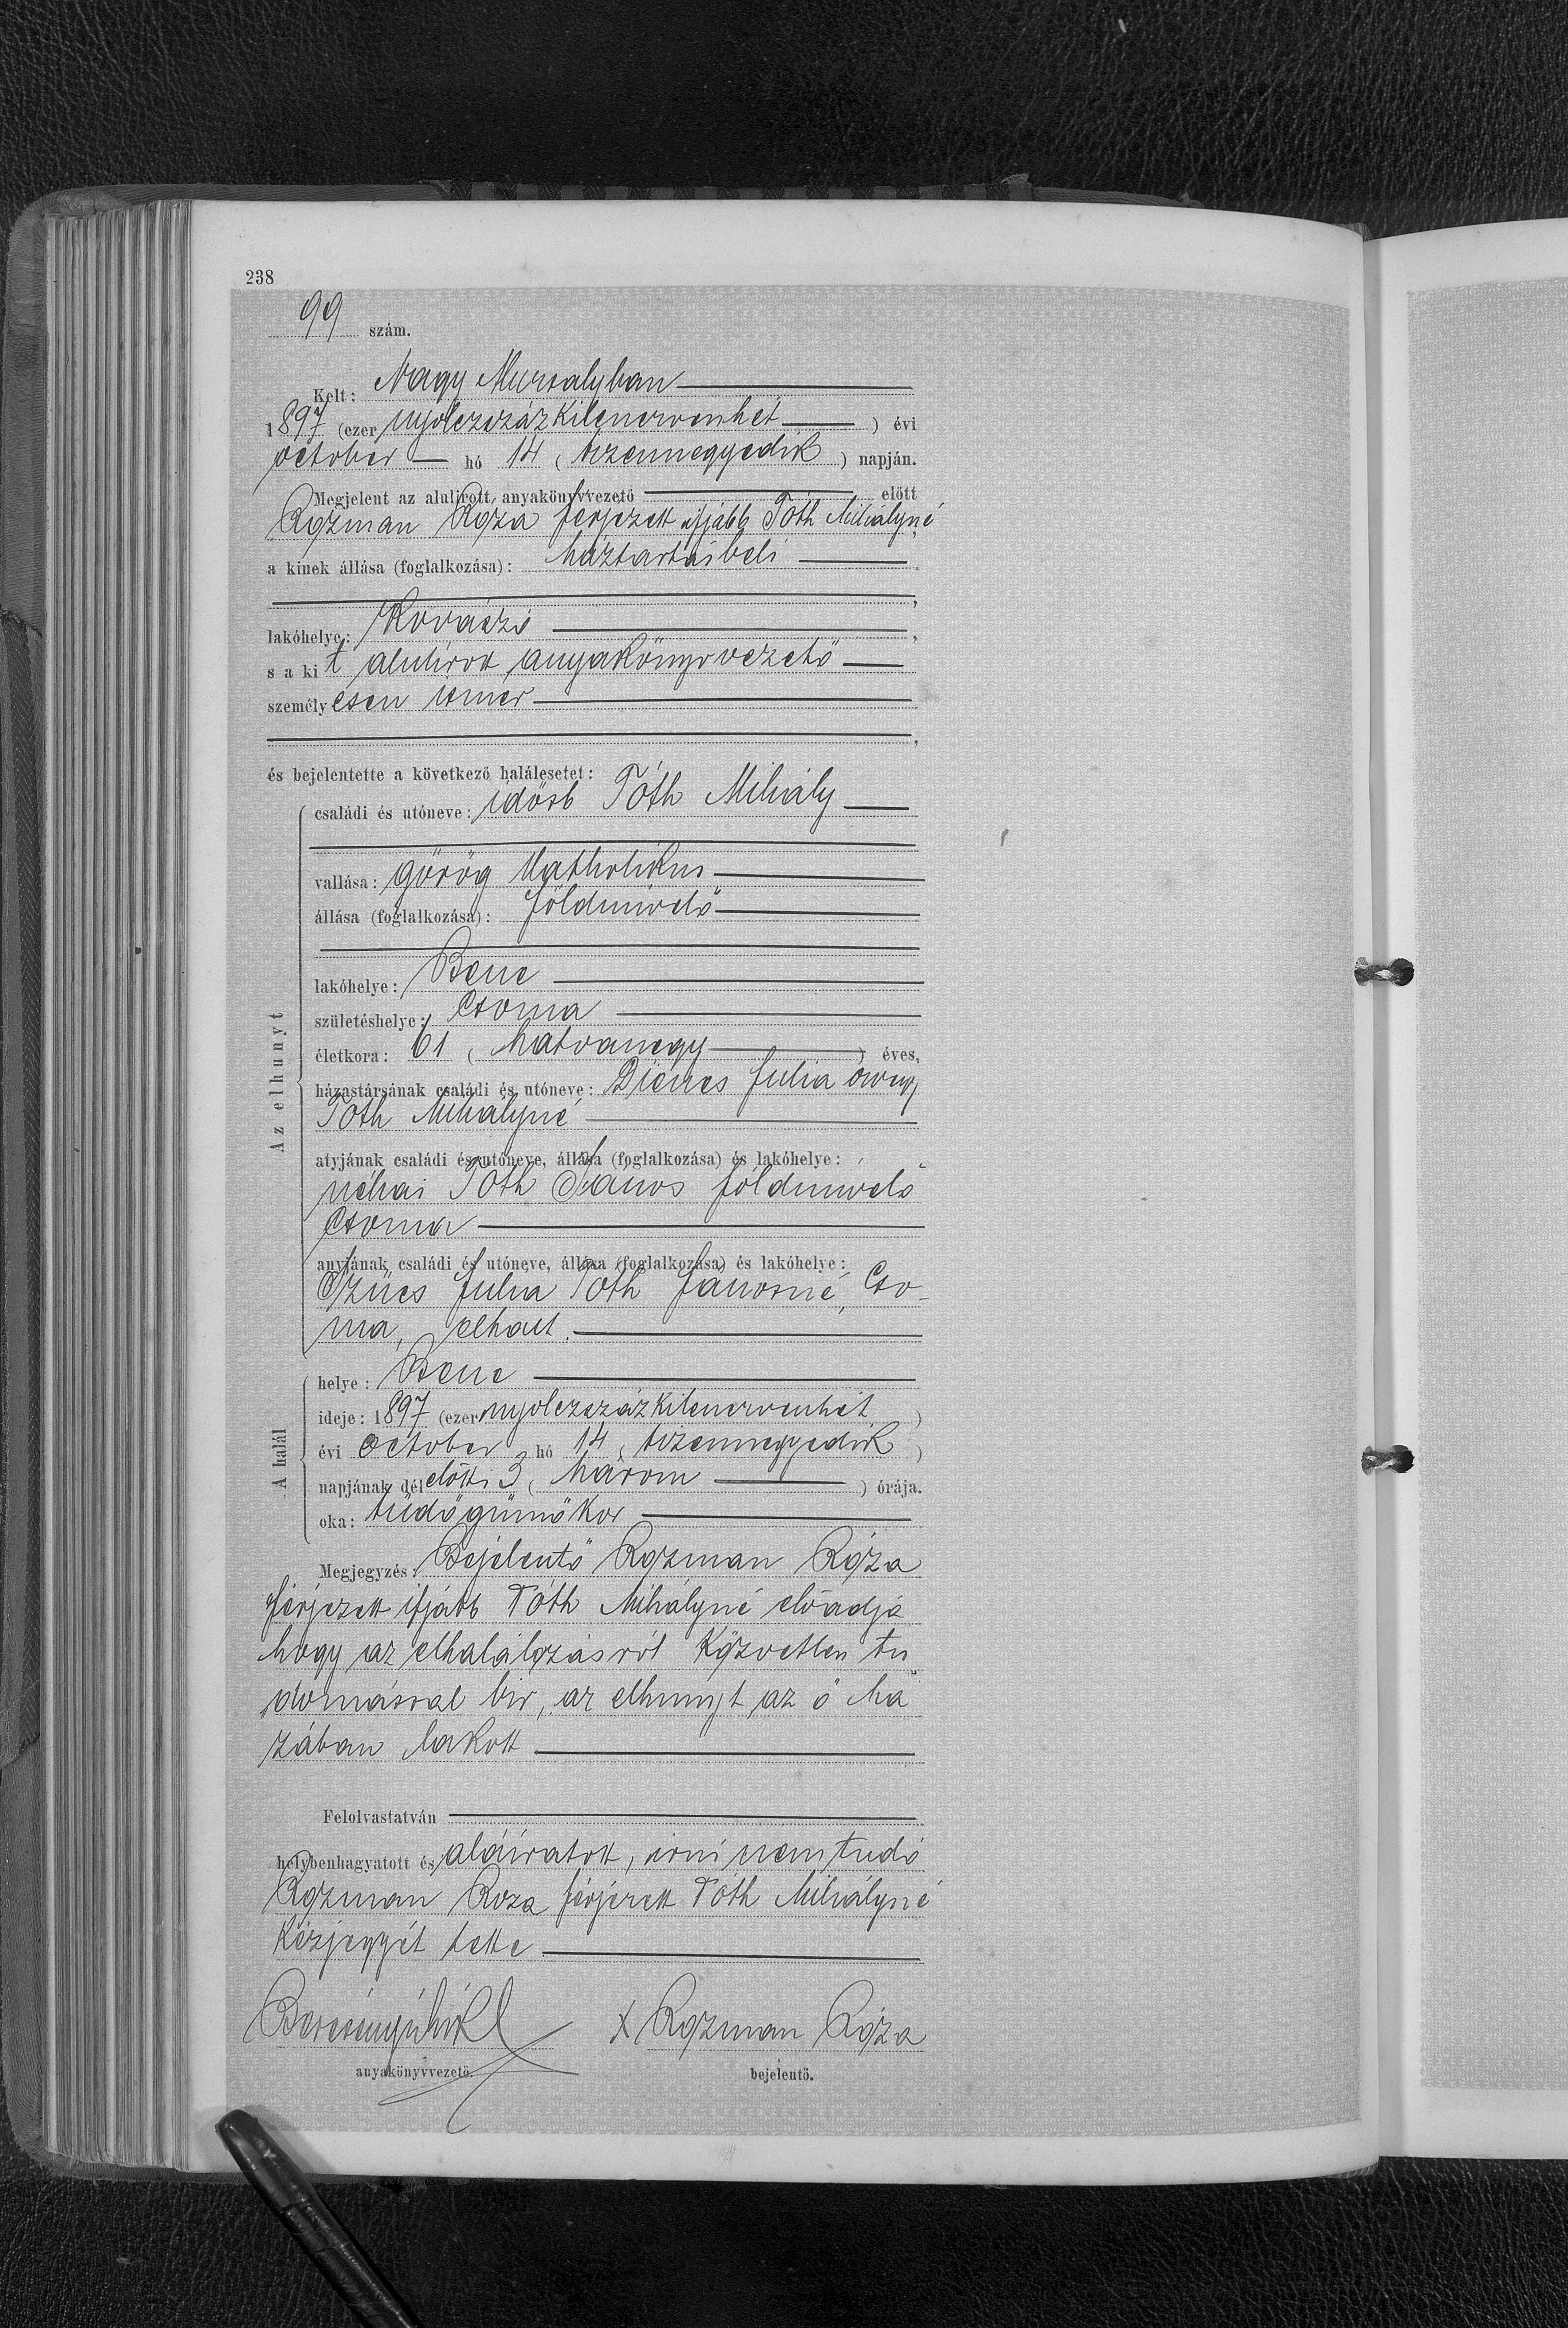 238
99 szám.
Kelt: Nagy Muzsalyban
1897 (ezer nyolczszázkilenczvenhét) évi
october hó 14 (tizennegyedik) napján.
Megjelent az alulirott anyakönyvvezető előtt
Rozman Róza férjezett ifjabb Tóth Mihályné
a kinek állása (foglalkozása): háztartásbeli
lakóhelye: Kovászó,
s a kit alulirott anyakönyvvezető
személyesen ismer,
és bejelentette a következő halálesetet:
Az elhunyt
családi és utóneve: idősb Tóth Mihály
vallása: görög katholikus
állása (foglalkozása): földmivelő
lakóhelye: Bene
születéshelye: Csoma
életkora: 61 (hatvanegy) éves,
házastársának családi és utóneve: Dienes Julia özvegy
Tóth Mihályné
atyjának családi és utóneve, állása (foglalkozása) és lakóhelye:
néhai Tóth János földmivelő
Csoma
anyjának családi és utóneve, állása (foglalkozása) és lakóhelye:
Szücs Julia Tóth Jánosné, Cso-
ma, elhalt.
A halál
helye: Bene
ideje: 1897 (ezer nyolczszázkilenczvenhét)
évi october hó 14 (tizennegyedik)
napjának délelőtti 3 (három) órája.
oka: tüdőgümőkor
Megjegyzés: Bejelentő Rozman Róza
férjezett ifjabb Tóth Mihályné előadja
hogy az elhalálozásról közvetlen tu
domással bir, az elhunyt az ő há
zában lakott
Felolvastatván
helybenhagyatott és aláiratott, irni nem tudó
Rozman Roza férjezett Tóth Mihályné
kézjegyét tette
x Rozman Róza
anyakönyvvezető. bejelentő.